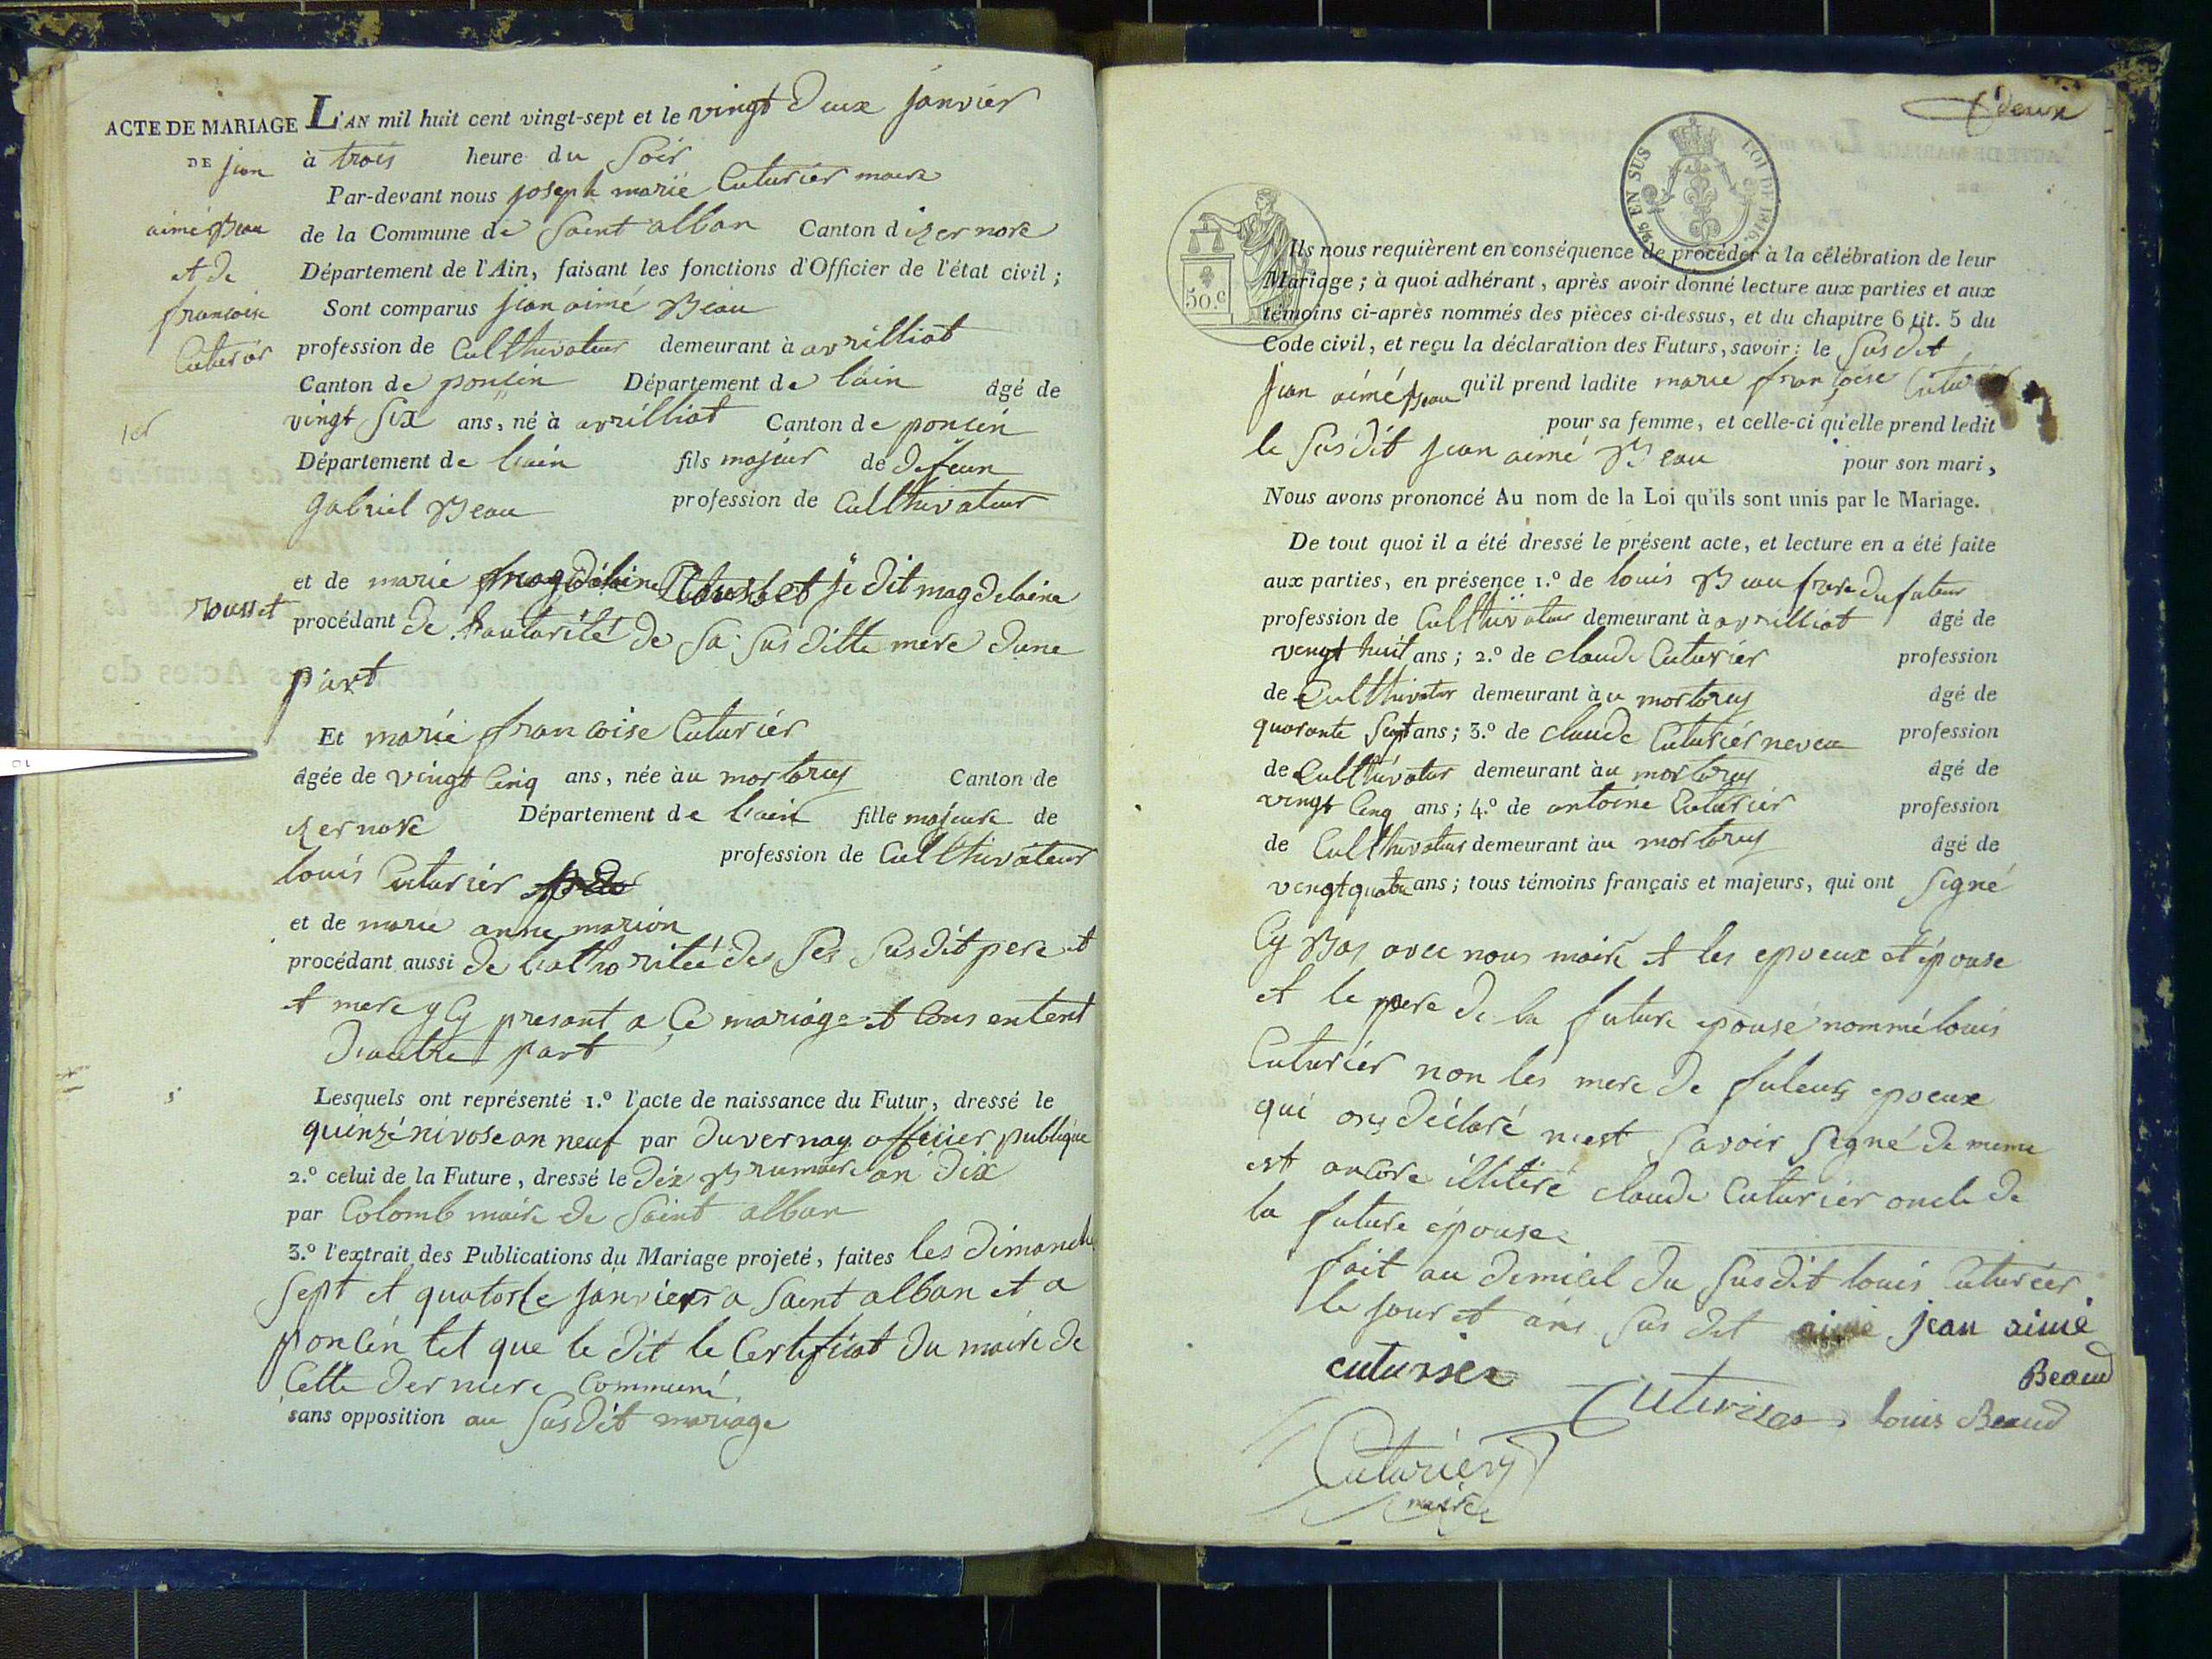 ACTE DE MARIAGE
DE jean
aimé Beau
et de
francoise
Cuturier
1er
rousset
L'AN mil huit cent vingt-sept et le vingt deux janvier
à trois heure du Soir
Par-devant nous joseph marie Cuturier maire
de la Commune de Saint alban Canton d izernore
Département de l'Ain, faisant les fonctions d'Officier de l'état civil ;
Sont comparus jean aimé Beau
profession de Culthivateur demeurant à avrilliat
Canton de poncin Département de l'ain âgé de
vingt Six ans, né à avrilliat Canton de poncin
Département de l'ain fils majeur de defeun
gabriel Beau profession de Culthivateur
et de marie je dit magdelaine
procédant de l'autorité de Sa Sus ditte mere dune
part
Et marie francoise Cuturier
âgée de vingt Cinq ans, née àu mortarey Canton de
izernore Département de l'ain fille majeure de
louis Cuturier profession de Culthivateur
et de marie anne marion
procédant aussi de l'athoritée de Ses Susdit pere et
et mere y Cy presant a Ce mariage et Consentent
d'autre part
Lesquels ont représenté 1.º l'acte de naissance du Futur, dressé le
quinzé nivose an neuf par duvernay officier publique
2.º celui de la Future, dressé le dix Brumaire an dix
par Colomb maire de Saint alban
3.º l'extrait des Publications du Mariage projeté, faites les dimanche
Sept et quatorze janviers a Saint alban et a
poncin tel que le dit le Certifficat du maire de
Cette derniere Communé
sans opposition au Susdit mariage
deux
5/6 EN SUS LOI DE 1816
50.c
Ils nous requièrent en conséquence de procéder à la célébration de leur
Mariage ; à quoi adhérant, après avoir donné lecture aux parties et aux
témoins ci-après nommés des pièces ci-dessus, et du chapitre 6 tit. 5 du
Code civil, et reçu la déclaration des Futurs, savoir : le Susdit
jean aimé Beau qu'il prend ladite marie françoise Cuturier
pour sa femme, et celle-ci qu'elle prend ledit
le Susdit jean aimé Beau pour son mari,
Nous avons prononcé Au nom de la Loi qu'ils sont unis par le Mariage.
De tout quoi il a été dressé le présent acte, et lecture en a été faite
aux parties, en présence 1.º de louis Beau frere du futeur
profession de Culthivateur demeurant à avrilliat âgé de
vengt huit ans ; 2.º de claude Cuturier profession
de Culthivateur demeurant àu mortarey âgé de
quarante Sept ans ; 3.º de claude Cuturier neveu profession
de Culthivateur demeurant àu mortarey âgé de
vingt Cinq ans ; 4.º de antoine Cuturier profession
de Culthivateur demeurant àu mortarey âgé de
vengt quatre ans ; tous témoins français et majeurs, qui ont Signé
Cy Bas avec nous maire et les epoeux et épouse
et le pere de la future epouse nommé louis
Cuturier non les mere de futeurs epoeux
qui ons déclaré n'est Savoir Segné de meme
est ancore illitéré claude Cuturier oncle de
la future épouse
fait au domicil du Susdit louis Cuturier
le jour et ans Sus dit jean aimé
Beaud
cuturier
Cuturier louis Beaud
Cuturier
maire